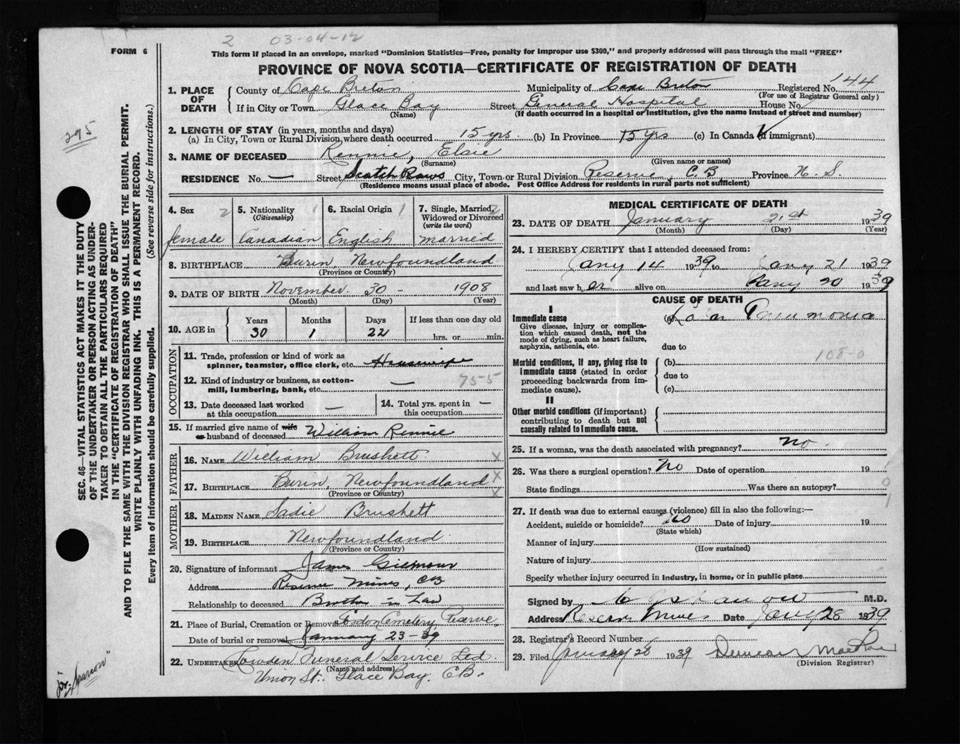 2 03-04-12
FORM 6
This form if placed in an envelope, marked "Dominion Statistics—Free, penalty for improper use $300," and properly addressed will pass through the mail "FREE"
PROVINCE OF NOVA SCOTIA—CERTIFICATE OF REGISTRATION OF DEATH
1. PLACE OF DEATH County of Cape Breton Municipality of Cape Breton Registered No. 144
(For use of Registrar General only)
If in City or Town Glace Bay Street General Hospital House No.
(Name) (If death occurred in a hospital or institution, give the name instead of street and number)
2. LENGTH OF STAY (in years, months and days)
(a) In City, Town or Rural Division where death occurred 15 yrs. (b) In Province 15 yrs (c) In Canada (if immigrant)
3. NAME OF DECEASED Rennie, Elsie
(Surname) (Given name or names)
RESIDENCE No. — Street Scotch Rows City, Town or Rural Division Reserve, C.B Province N. S.
(Residence means usual place of abode. Post Office Address for residents in rural parts not sufficient)
4. Sex 2 female
5. Nationality (Citizenship) 1 Canadian
6. Racial Origin 1 English
7. Single, Married, Widowed or Divorced (write the word) 2 married
8. BIRTHPLACE Burin, Newfoundland
(Province or Country)
9. DATE OF BIRTH November 30 - 1908
(Month) (Day) (Year)
10. AGE in Years 30 Months 1 Days 22 If less than one day old hrs. or min.
OCCUPATION
11. Trade, profession or kind of work as spinner, teamster, office clerk, etc. Housewife
12. Kind of industry or business, as cotton-mill, lumbering, bank, etc. —
13. Date deceased last worked at this occupation —
14. Total yrs. spent in this occupation —
15. If married give name of wife or husband of deceased William Rennie
FATHER
16. NAME William Brushett X
17. BIRTHPLACE Burin, Newfoundland X
(Province or Country) X
MOTHER
18. MAIDEN NAME Sadie Brushett
19. BIRTHPLACE Newfoundland
(Province or Country)
20. Signature of informant James Gilmour
Address Reserve Mines, CB
Relationship to deceased Brother in Law
21. Place of Burial, Cremation or Removal Cemetery Reserve
Date of burial or removal January 23-39
22. UNDERTAKER Funeral Service Ltd
(Name and address)
Union St. Glace Bay. C.B.
MEDICAL CERTIFICATE OF DEATH
23. DATE OF DEATH January 21st 1939
(Month) (Day) (Year)
24. I HEREBY CERTIFY that I attended deceased from:
Jany 14 1939 to Jany 21 1939
and last saw her alive on Jany 20 1939
CAUSE OF DEATH
I
Immediate cause (a) Lobar Pneumonia
Give disease, injury or complication which caused death, not the mode of dying, such as heart failure, asphyxia, asthenia, etc.
due to
108-0
Morbid conditions, if any, giving rise to immediate cause (stated in order proceeding backwards from immediate cause).
(b)
due to
(c)
II
Other morbid conditions (if important) contributing to death but not causally related to immediate cause.
25. If a woman, was the death associated with pregnancy? no.
26. Was there a surgical operation? No Date of operation 19
State findings Was there an autopsy?
27. If death was due to external causes (violence) fill in also the following:—
Accident, suicide or homicide? No Date of injury 19
(State which)
Manner of injury
(How sustained)
Nature of injury
Specify whether injury occurred in industry, in home, or in public place
Signed by M.D.
Address Reserve Mines Date Jany 28 1939
28. Registrar's Record Number
29. Filed January 28 1939 Duncan
(Division Registrar)
295
SEC. 46—VITAL STATISTICS ACT MAKES IT THE DUTY OF THE UNDERTAKER OR PERSON ACTING AS UNDERTAKER TO OBTAIN ALL THE PARTICULARS REQUIRED IN THE "CERTIFICATE OF REGISTRATION OF DEATH" AND TO FILE THE SAME WITH THE DIVISION REGISTRAR WHO SHALL ISSUE THE BURIAL PERMIT.
WRITE PLAINLY WITH UNFADING INK. THIS IS A PERMANENT RECORD.
Every item of information should be carefully supplied. (See reverse side for instructions.)